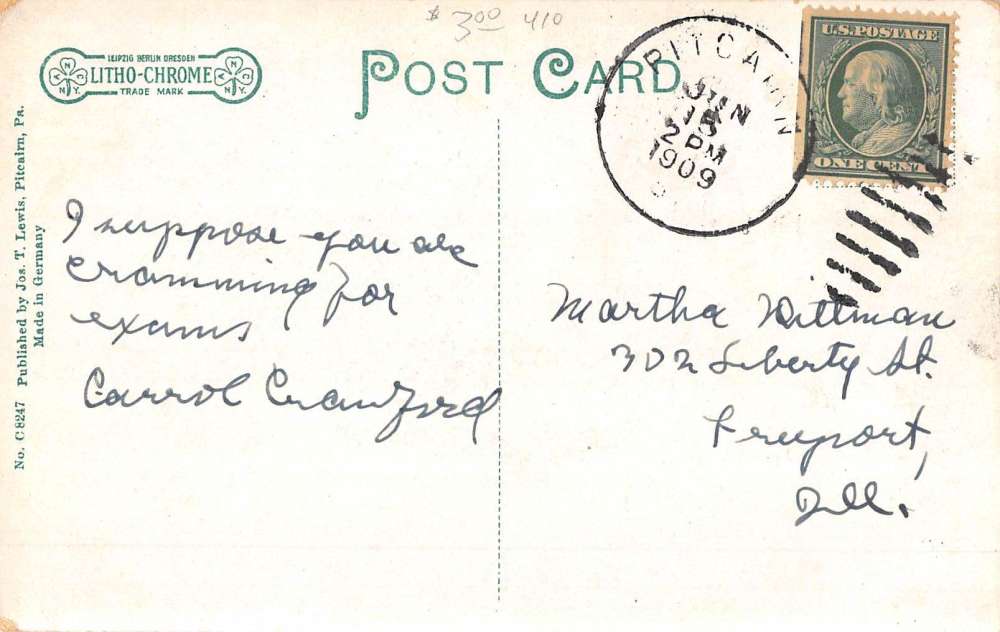 $ 3.00 410
LEIPZIG BERLIN DRESDEN
LITHO-CHROME
TRADE MARK
N Y.
N Y.
POST CARD
PITCAIRN
JUN
15
2 PM
1909
U.S. POSTAGE
ONE CENT
No. C8247 Published by Jos. T. Lewis, Pitcairn, Pa.
Made in Germany
I suppose you are
cramming for
exams
Carrol Crawford
Martha Wittman
302 Liberty St.
Freeport,
Ill.